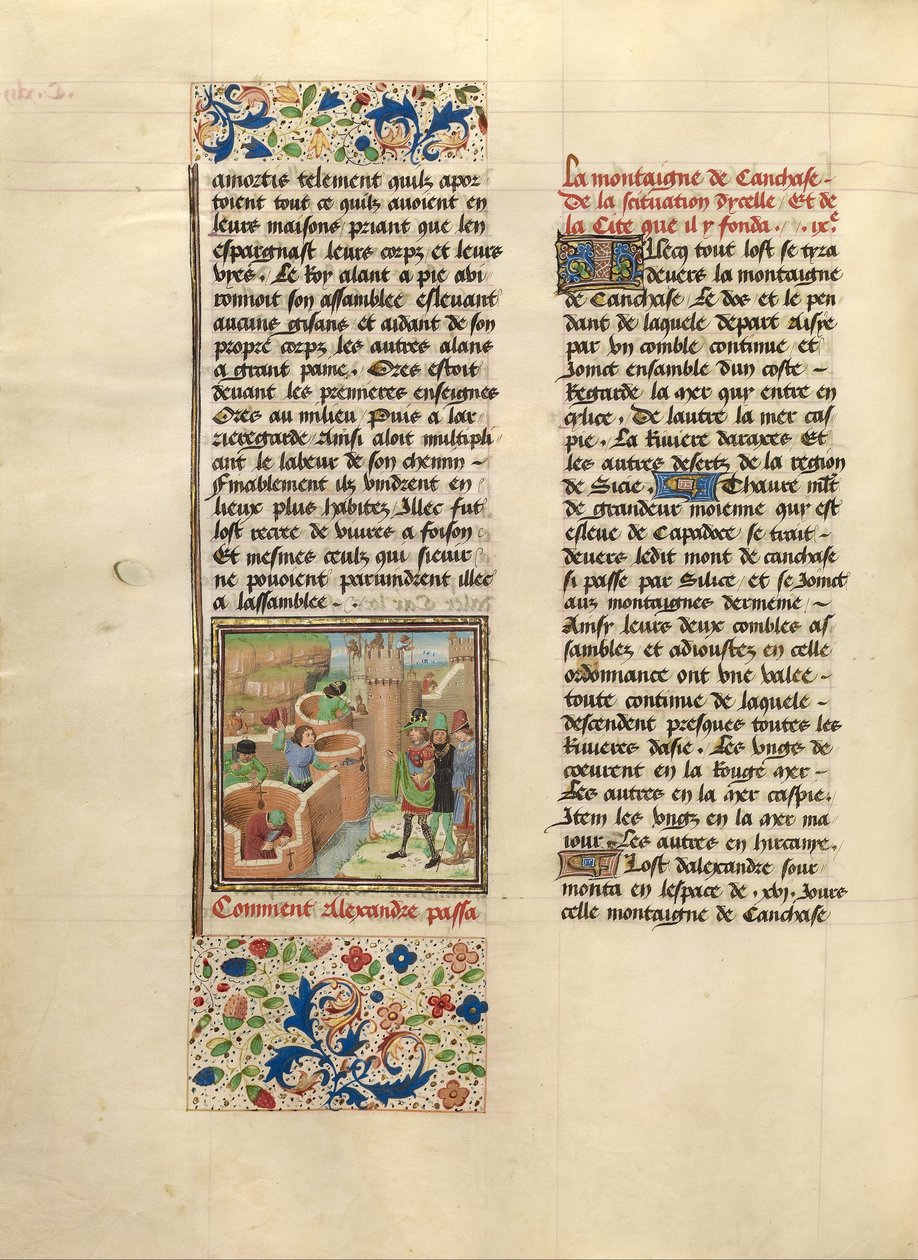 amortis telement quilz apor-
toient tout ce quilz auoient en
leurs maisons priant que len
espargnast leurs corpz et leurs
vyes. Le Roy alant a pie abi
ronnoit son assamblee esleuant
aucuns gisans / et aidant de son
propre corpz les autres alans
a grant paine. Ores estoit
deuant les premieres enseignes
Ores au milieu / Puis a lar-
rieregarde / Ainsi aloit multipli-
ant le labeur de son chemin -
Finablement ilz vindrent en
lieux plus habitez / Illec fut
lost recree de viures a foison
Et mesmes ceulz qui sieuir
ne pouoient paruindrent illec
a lassamblee - .
Comment Alexandre passa
La montaigne de Canchase -
De la scituation dycelle / Et de
la Cite que il y fonda. .ixe.
Illecq tout lost se tyra
deuers la montaigne
de Canchase / Le dos et le pen
dant de laquele depart Aisye
par vn comble continue et
Joinct ensamble dun coste -
Regarde la mer quy entre en
cylice. De lautre la mer cas
pie. La Riuiere daraxes Et
les autres desertz de la region
de Sicie. Thaure mlt
de grandeur moienne quy est
esleue de Capadoce se trait -
deuers ledit mont de canchase
si passe par Silice / et se Joinct
aux montaignes dermenie / -
Ainsy leurs deux combles as
samblez et adioustez en celle
ordonnance ont vne valee -
toute continue de laquele -
descendent presques toutes les
Riuieres dasie. Les vngs de
coeurent en la Rouge mer -
Les autres en la mer caspie.
Item les vngz en la mer ma
iour. Les autres en hircanye.
Lost dalexandre sour
monta en lespace de .xvj. Jours
celle montaigne de Canchase